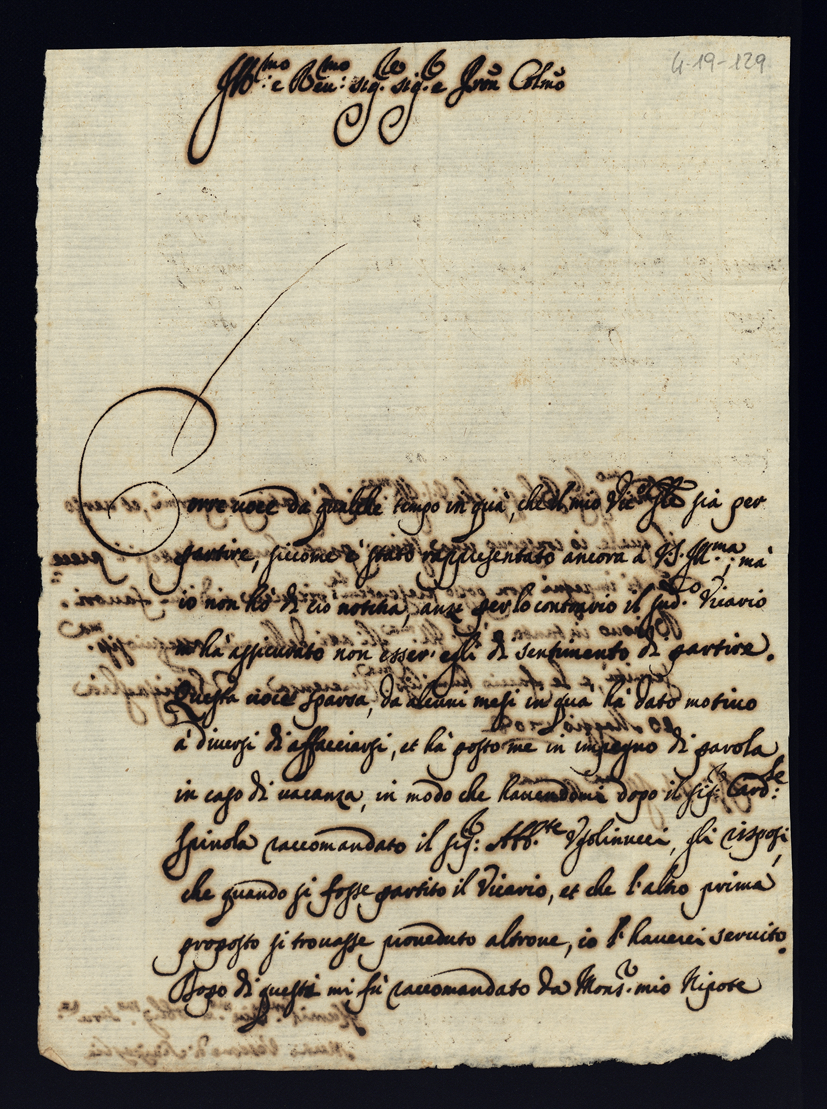 4-19-129
Ill.mo e Reu.mo sig.re sig.re e Pron Colmo
Corre uoce da qualche tempo in quà, che il mio Vic.o sia per
partire, siccome è stato rappresentato ancora à V.S. Ill.ma, mà
io non hò di ciò notitia, anzi per lo contrario il sud.o Vicario
m'hà assicurato non esser' egli di sentimento di partire.
Questa uoce sparsa, da alcuni mesi in quà hà dato motiuo
à diuersi di affacciarsi, et hà posto me in impegno di parola
in caso di uacanza, in modo che hauendomi dopo il sig.r Card.le
Spinola raccomandato il sig.r Abb.te Vgolinucci, gli risposi,
che quando si fosse partito il Vicario, et che l'altro prima
proposto si trouasse proueduto altroue, io l'hauerei seruito.
Dopo di questi mi fù raccomandato da Mons.r mio Nipote